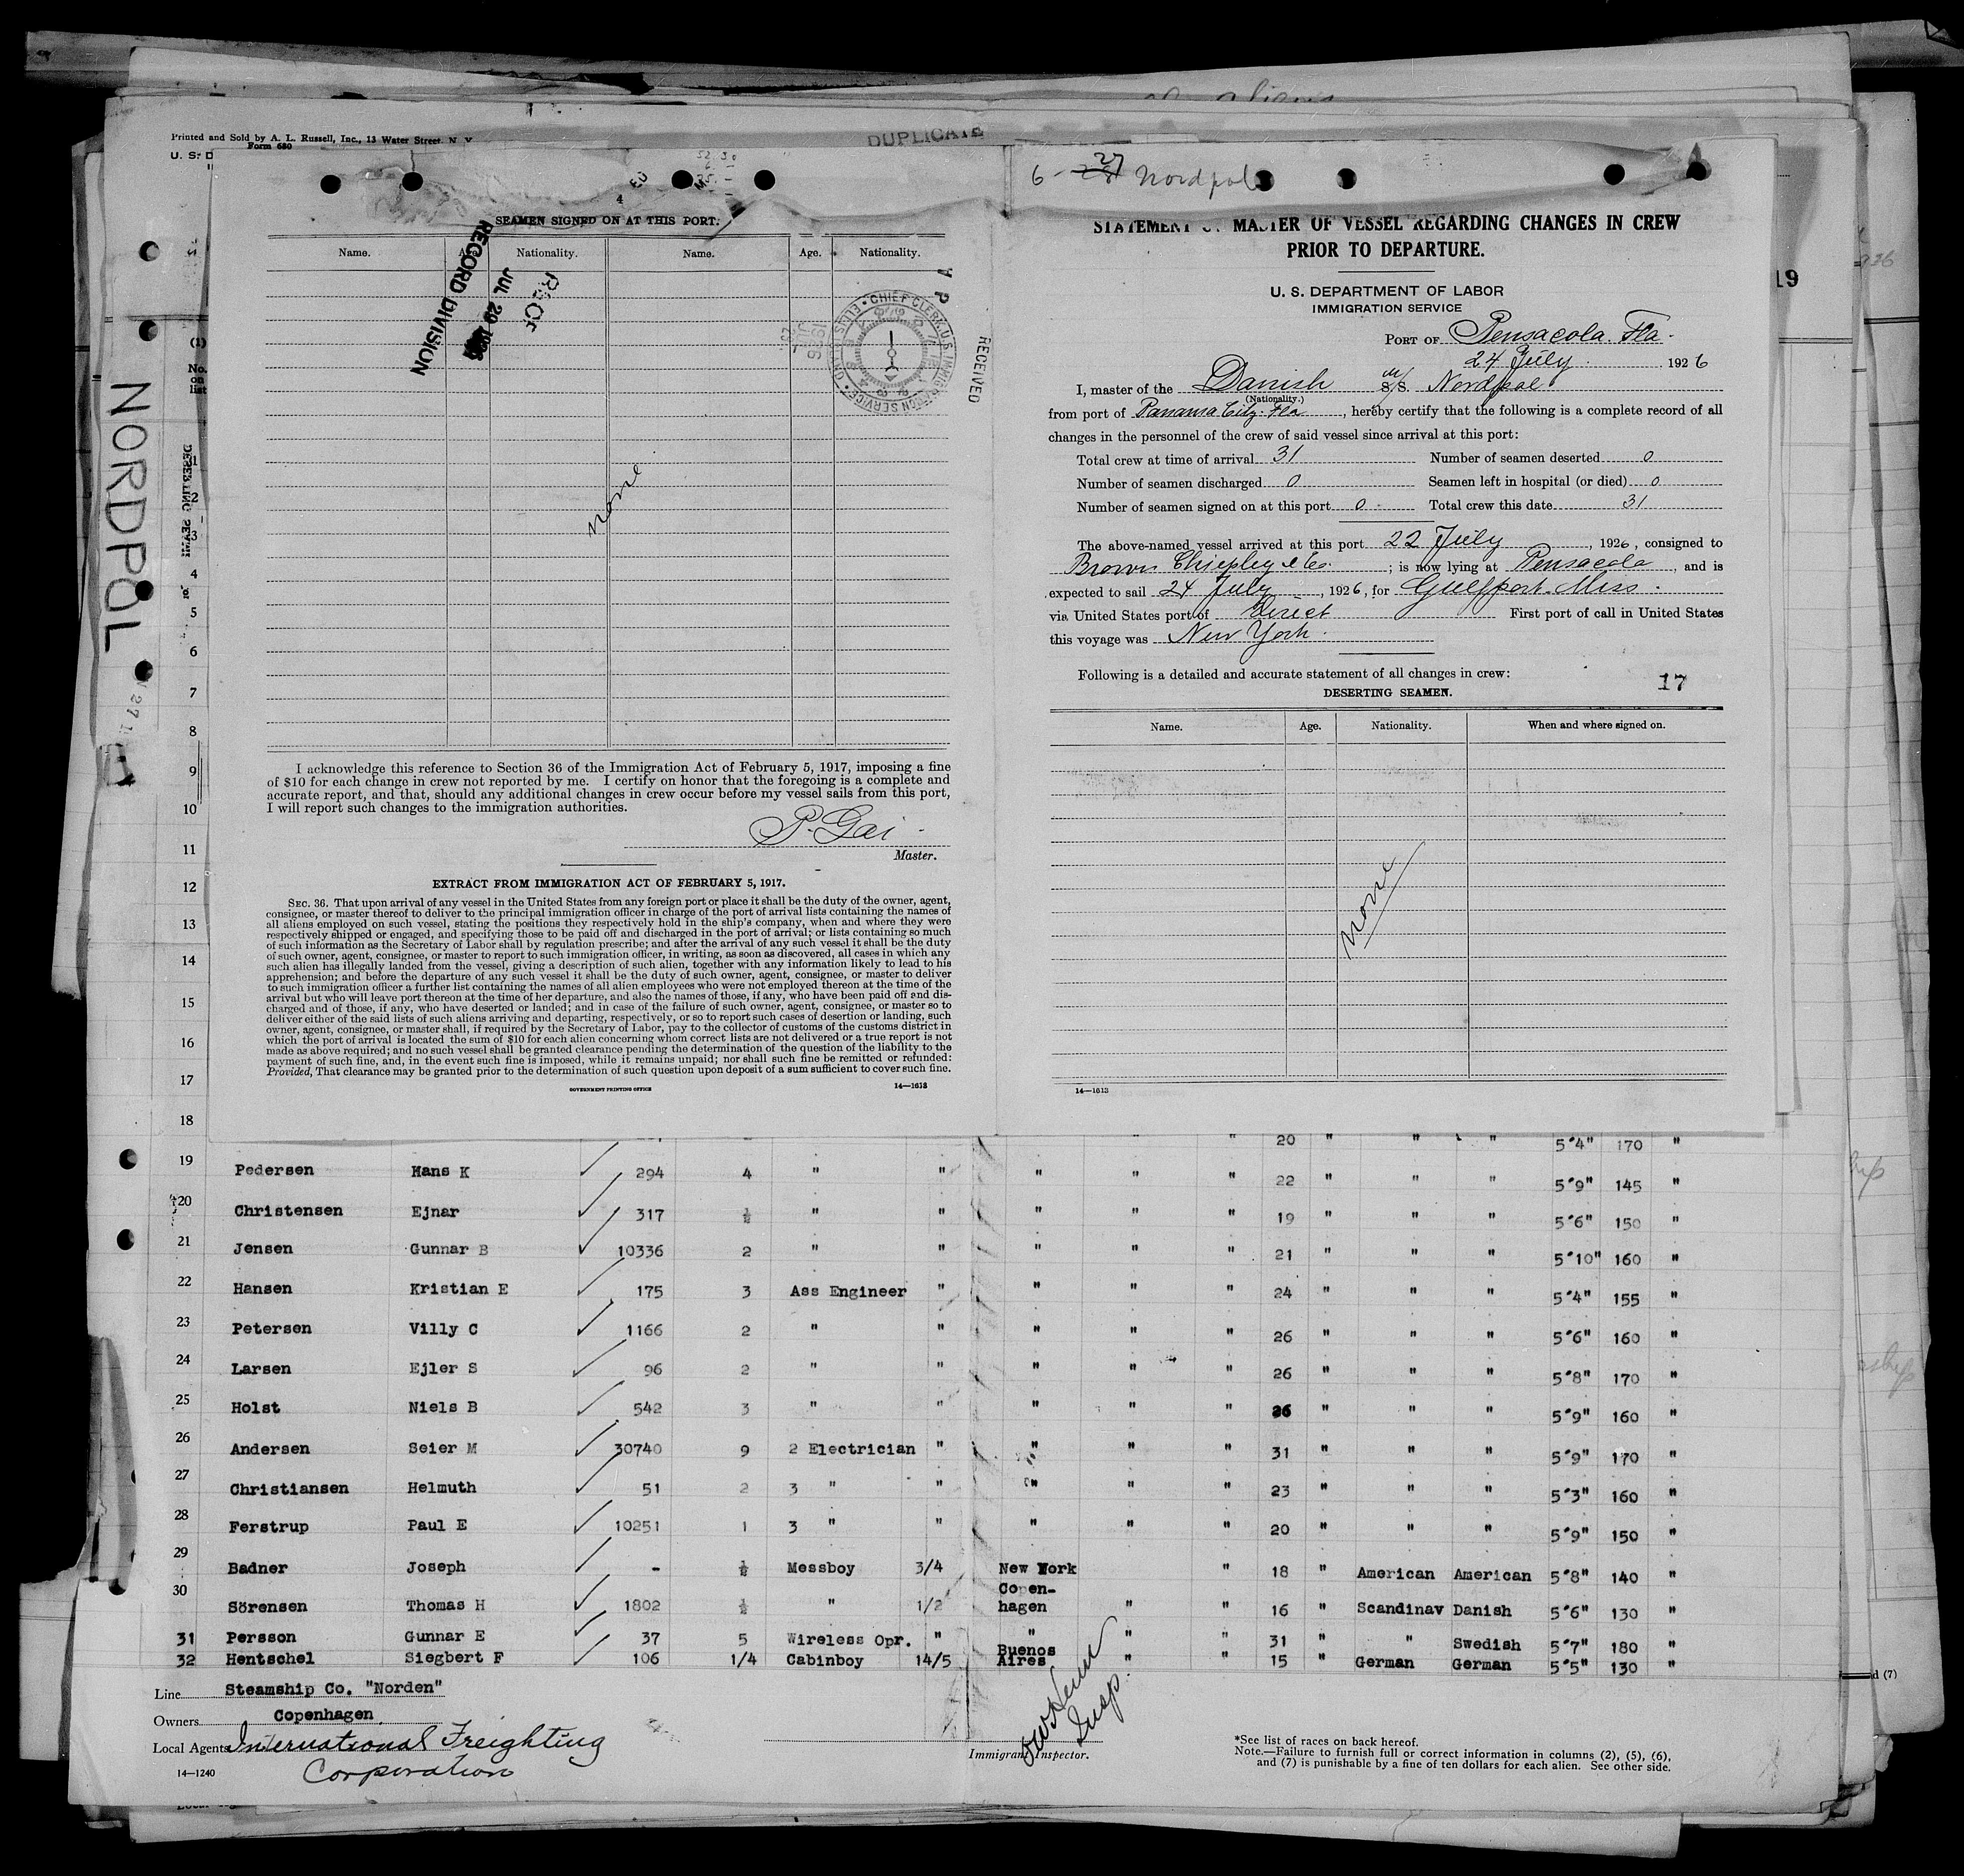 Printed and Sold by A. L. Russell, Inc., 13 Water Street, N. Y.
Form 680
DUPLICATE
U. S. D
NORDPOL
(1)
No.
on
list
DESERTING SEAMEN
19
4
SEAMEN SIGNED ON AT THIS PORT:
Name. Age. Nationality. Name. Age. Nationality.
RECORD DIVISION
JUL 29 1926
none
CHIEF CLERK, U.S. IMMIGRATION SERVICE
RECEIVED
I acknowledge this reference to Section 36 of the Immigration Act of February 5, 1917, imposing a fine
of $10 for each change in crew not reported by me. I certify on honor that the foregoing is a complete and
accurate report, and that, should any additional changes in crew occur before my vessel sails from this port,
I will report such changes to the immigration authorities.
P. Gai
Master.
EXTRACT FROM IMMIGRATION ACT OF FEBRUARY 5, 1917.
SEC. 36. That upon arrival of any vessel in the United States from any foreign port or place it shall be the duty of the owner, agent,
consignee, or master thereof to deliver to the principal immigration officer in charge of the port of arrival lists containing the names of
all aliens employed on such vessel, stating the positions they respectively hold in the ship's company, when and where they were
respectively shipped or engaged, and specifying those to be paid off and discharged in the port of arrival; or lists containing so much
of such information as the Secretary of Labor shall by regulation prescribe; and after the arrival of any such vessel it shall be the duty
of such owner, agent, consignee, or master to report to such immigration officer, in writing, as soon as discovered, all cases in which any
such alien has illegally landed from the vessel, giving a description of such alien, together with any information likely to lead to his
apprehension; and before the departure of any such vessel it shall be the duty of such owner, agent, consignee, or master to deliver
to such immigration officer a further list containing the names of all alien employees who were not employed thereon at the time of the
arrival but who will leave port thereon at the time of her departure, and also the names of those, if any, who have been paid off and dis-
charged and of those, if any, who have deserted or landed; and in case of the failure of such owner, agent, consignee, or master so to
deliver either of the said lists of such aliens arriving and departing, respectively, or so to report such cases of desertion or landing, such
owner, agent, consignee, or master shall, if required by the Secretary of Labor, pay to the collector of customs of the customs district in
which the port of arrival is located the sum of $10 for each alien concerning whom correct lists are not delivered or a true report is not
made as above required; and no such vessel shall be granted clearance pending the determination of the question of the liability to the
payment of such fine, and, in the event such fine is imposed, while it remains unpaid; nor shall such fine be remitted or refunded:
Provided, That clearance may be granted prior to the determination of such question upon deposit of a sum sufficient to cover such fine.
GOVERNMENT PRINTING OFFICE 14—1613
6 - 27 Nordpol
STATEMENT OF MASTER OF VESSEL REGARDING CHANGES IN CREW
PRIOR TO DEPARTURE.
U. S. DEPARTMENT OF LABOR
IMMIGRATION SERVICE
PORT OF Pensacola. Fla.
24 July, 1926
I, master of the Danish M/S. Nordpol
(Nationality.)
from port of Panama City. Fla, hereby certify that the following is a complete record of all
changes in the personnel of the crew of said vessel since arrival at this port:
Total crew at time of arrival 31 Number of seamen deserted 0
Number of seamen discharged 0 Seamen left in hospital (or died) 0
Number of seamen signed on at this port 0 Total crew this date 31
The above-named vessel arrived at this port 22 July, 1926, consigned to
Brown Chiepley & Co.; is now lying at Pensacola, and is
expected to sail 24 July, 1926, for Gulfport. Miss.
via United States port of Direct First port of call in United States
this voyage was New York.
Following is a detailed and accurate statement of all changes in crew:
17
DESERTING SEAMEN.
Name. Age. Nationality. When and where signed on.
none
14—1613
1
2
3
4
5
6
7
8
9
10
11
12
13
14
15
16
17
18
20 " " " 5'4" 170 "
19 Pedersen Hans K 294 4 " " " " " 22 " " " 5'9" 145 "
20 Christensen Ejnar 317 ½ " " " " " 19 " " " 5'6" 150 "
21 Jensen Gunnar B 10336 2 " " " " " 21 " " " 5'10" 160 "
22 Hansen Kristian E 175 3 Ass Engineer " " " " 24 " " " 5'4" 155 "
23 Petersen Villy C 1166 2 " " " " " 26 " " " 5'6" 160 "
24 Larsen Ejler S 96 2 " " " " " 26 " " " 5'8" 170 "
25 Holst Niels B 542 3 " " " " " 26 " " " 5'9" 160 "
26 Andersen Seier M 30740 9 2 Electrician " " " " 31 " " " 5'9" 170 "
27 Christiansen Helmuth 51 2 3 " " " " " 23 " " " 5'3" 160 "
28 Ferstrup Paul E 10251 1 3 " " " " " 20 " " " 5'9" 150 "
29 Badner Joseph - ½ Messboy 3/4 New York " 18 " American American 5'8" 140 "
30 Sörensen Thomas H 1802 ½ " 1/2 Copen-hagen " " 16 " Scandinav Danish 5'6" 130 "
31 Persson Gunnar E 37 5 Wireless Opr. " " " " 31 " " Swedish 5'7" 180 "
32 Hentschel Siegbert F 106 1/4 Cabinboy 14/5 Buenos Aires " " 15 " German German 5'5" 130 "
Line Steamship Co. "Norden"
Owners Copenhagen
Local Agents International Freighting
Corporation
14—1240
Insp.
Immigrant Inspector.
*See list of races on back hereof.
Note.—Failure to furnish full or correct information in columns (2), (5), (6),
and (7) is punishable by a fine of ten dollars for each alien. See other side.
d (7)